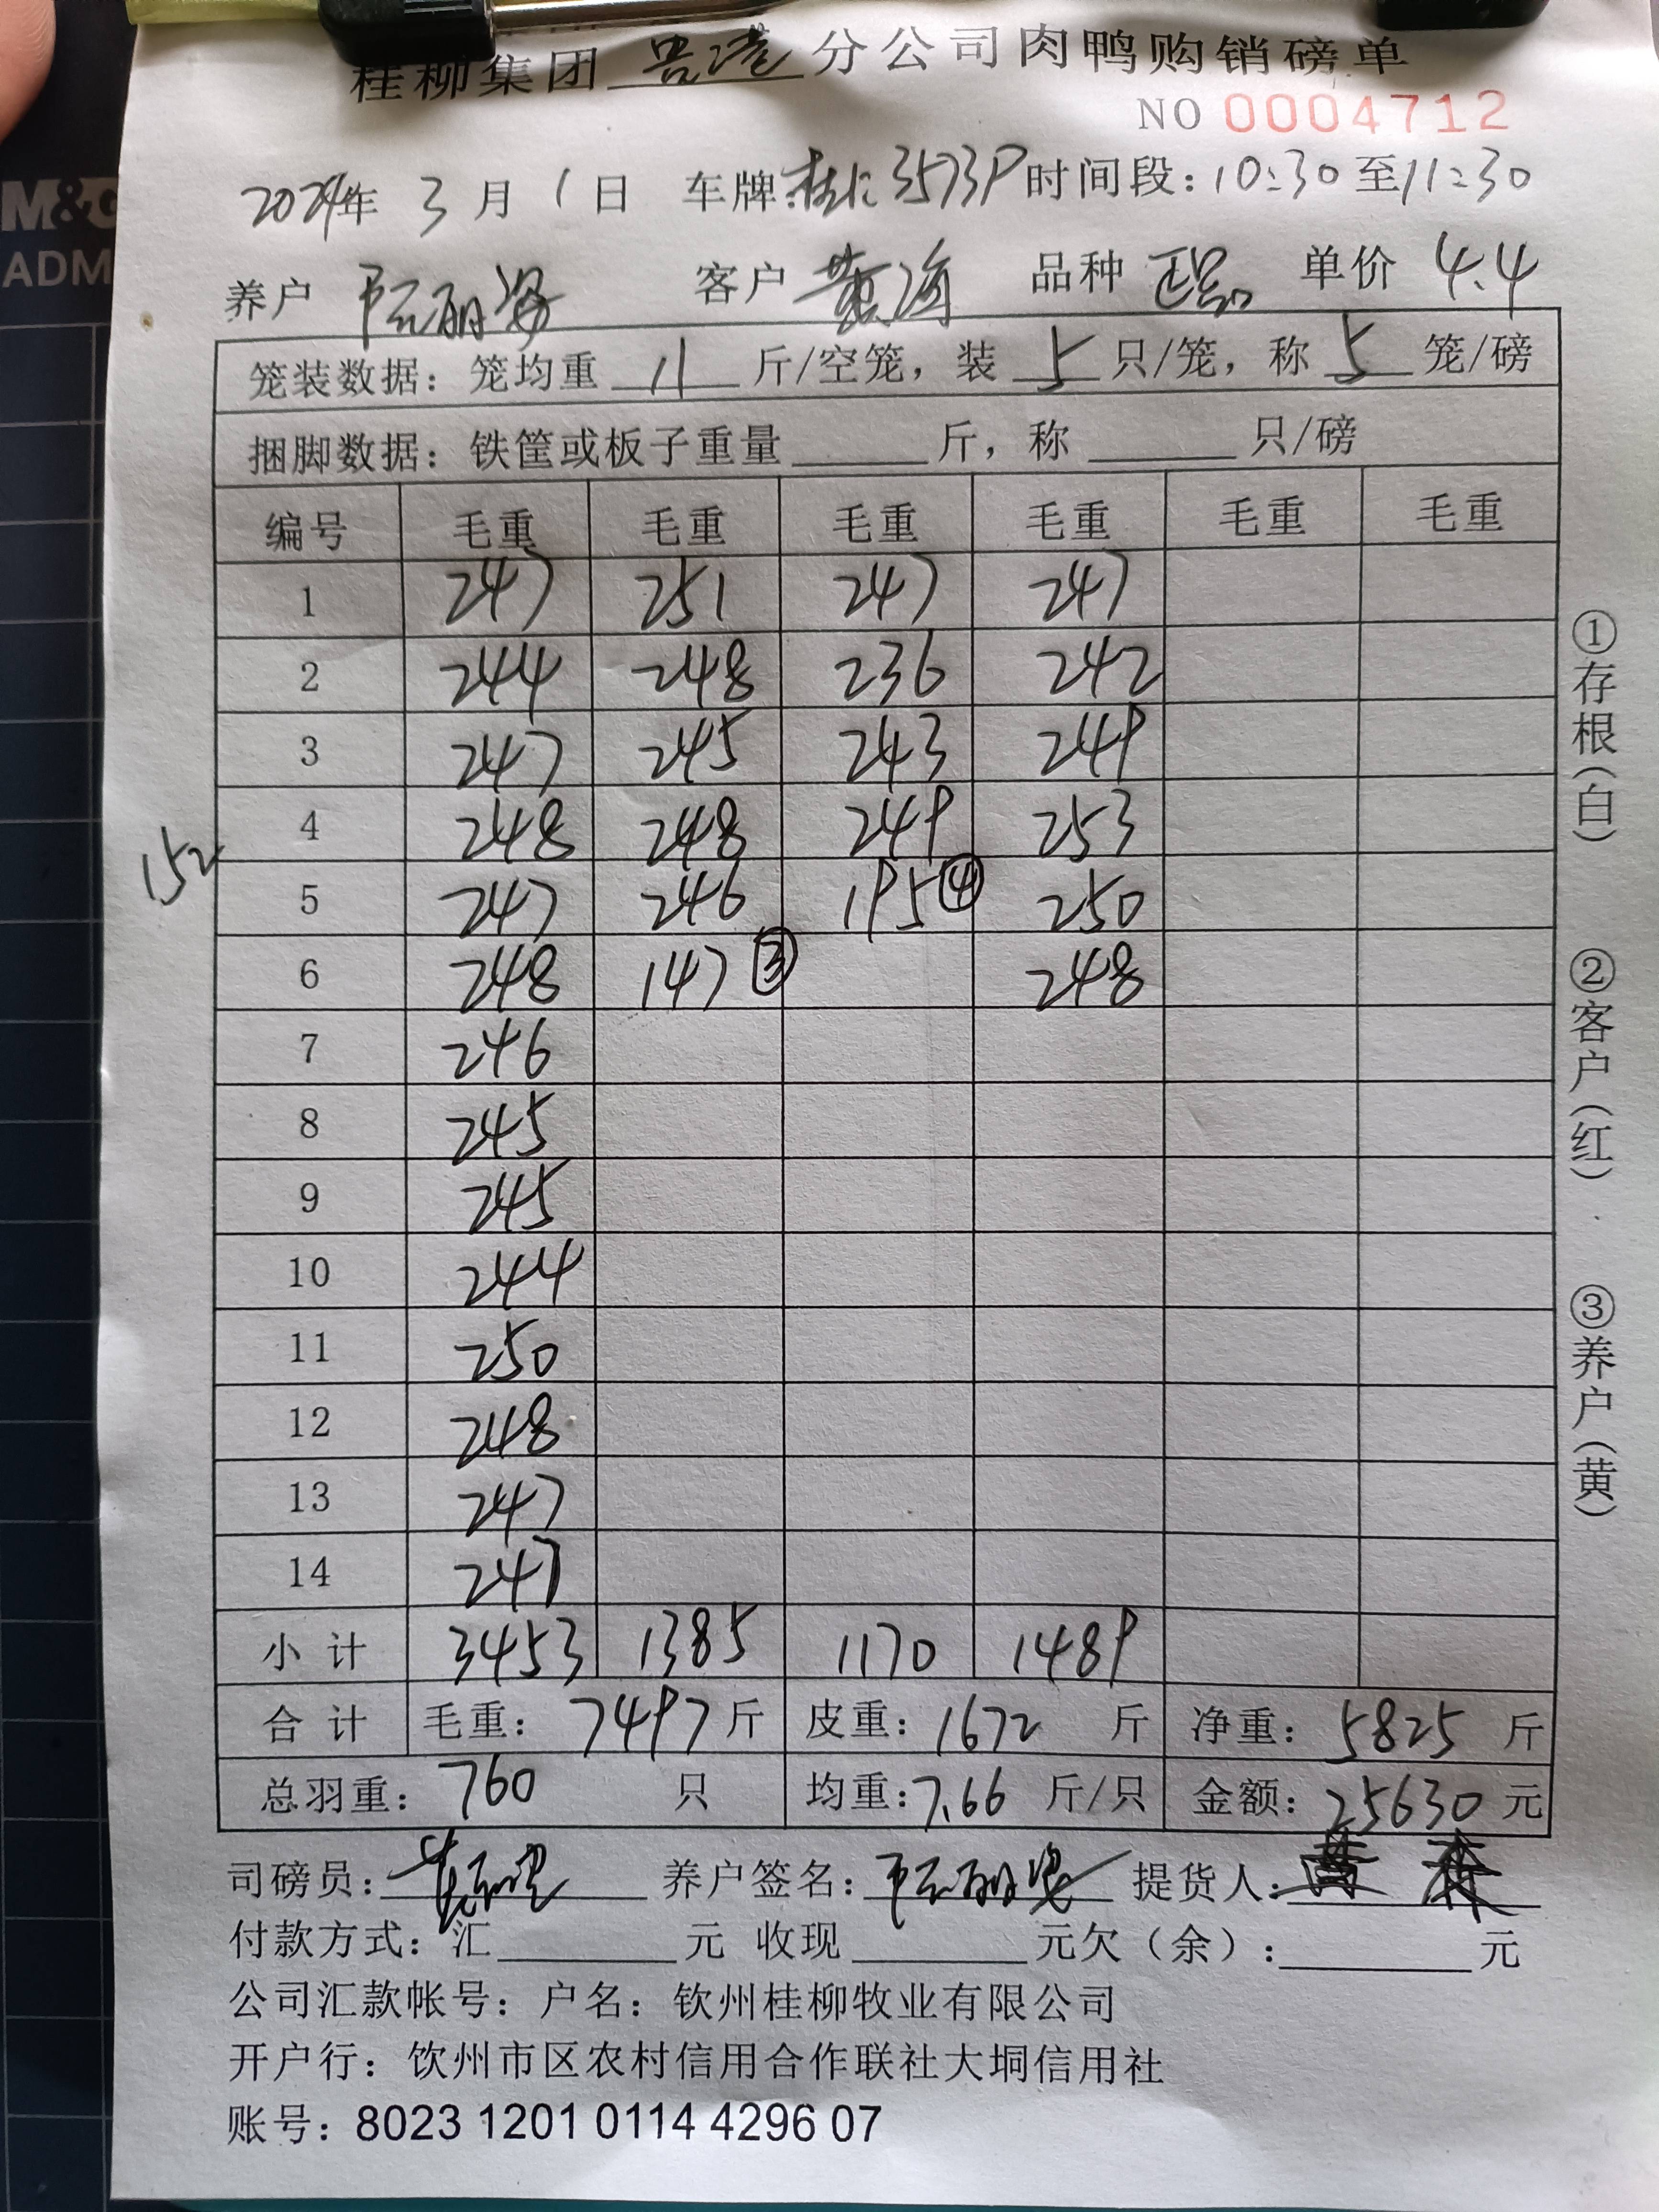 桂柳集团 分公司肉鸭购销磅单
NO 0004712
2024年 3 月 1 日 车牌: 3573P 时间段: 10:30 至 11:30
养户 阮丽姿 客户 黄海 品种 正品 单价 4.4
笼装数据: 笼均重 11 斤/空笼, 装 5 只/笼, 称 5 笼/磅
捆脚数据: 铁筐或板子重量 斤, 称 只/磅
编号 毛重 毛重 毛重 毛重 毛重 毛重
1 247 251 247 247
2 244 248 236 242
3 247 245 243 249
4 248 248 249 253
152
5 247 246 195④ 250
6 248 147③ 248
7 246
8 245
9 245
10 244
11 250
12 248
13 247
14 247
小 计 3453 1385 1170 1489
合 计 毛重: 7497 斤 皮重: 1672 斤 净重: 5825 斤
总羽重: 760 只 均重: 7.66 斤/只 金额: 25630 元
司磅员: 养户签名: 阮丽姿 提货人:
付款方式: 汇 元 收现 元欠(余): 元
公司汇款帐号: 户名: 钦州桂柳牧业有限公司
开户行: 钦州市区农村信用合作联社大垌信用社
账号: 8023 1201 0114 4296 07
①存根(白)
②客户(红)
③养户(黄)
M&G
ADM